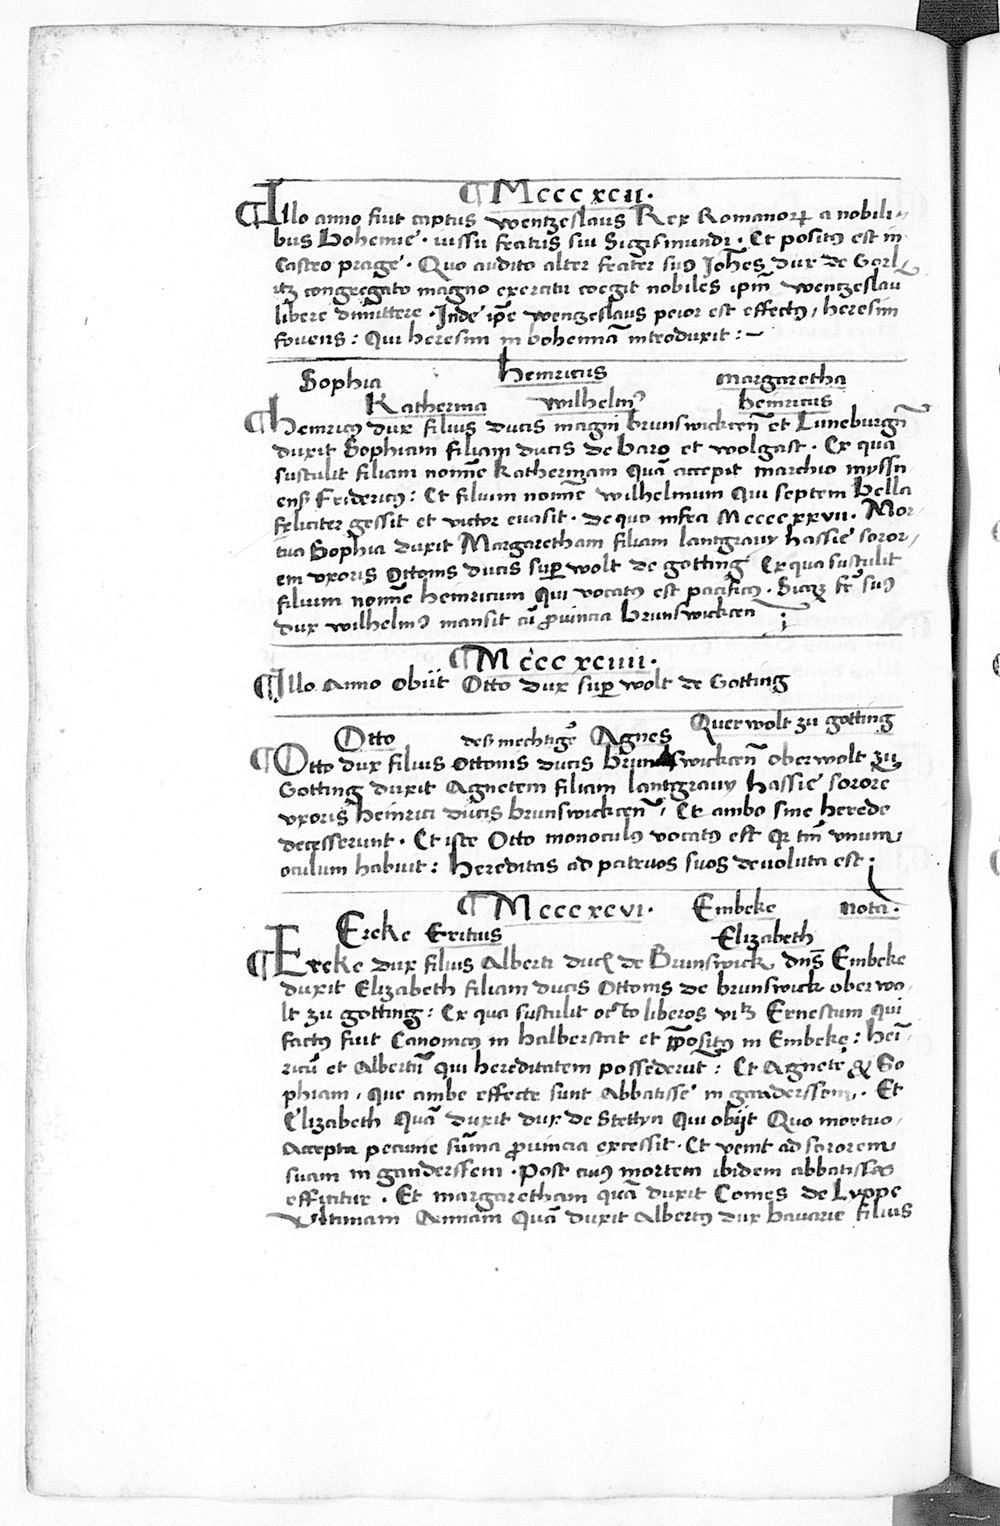 ¶ Mcccxcii.
¶ Illo anno fuit captus Wentzeslaus Rex Romanorꝝ a nobili-
bus Bohemie · iussu fratris sui Sigismundi · Et positꝰ est in
Castro prage · Quo audito alter frater suꝰ Joh̄es dux de Gorl
itz congregato magno exercitu coegit nobiles ip̄m wentzeslaū
libere dimittere · Inde ip̄e wentzeslaus peior est effectꝰ, heresim
fovens : Qui heresim in bohemiā introduxit : ~
Sophia Heinricus Margaretha
Katherina Wilhelmꝰ heinricus
¶ Heinricꝰ dux filius ducis magni brunswickcen̄ et Luneburgn̄
duxit Sophiam filiam ducis de bard et wolgast · Ex qua
sustulit filiam nomīe Katherinam Quā accepit marchio myssn
ens Fridericꝰ : Et filium nomīe wilhelmum Qui septem bella
feliciter gessit et victor evasit · de quo infra Mccccxxvii. Mor-
tua Sophia duxit Margaretham filiam lantgravy hassie soror-
em vxoris Ottonis ducis suꝑ wolt de gotting Ex qua sustulit
filium nomīe heinricum Qui vocatꝰ est pacificꝰ. Sicqꝫ fr̄ suꝰ
dux wilhelmꝰ mansit cū ꝓvincia brunswickcen ;
¶ Mcccxciiii.
¶ Illo Anno obiit Otto dux suꝑ wolt de Gotting
Otto deß mechtigē Agnes Querwolt zu gotting
¶ Otto dux filius Ottonis ducis brunswickcen̄ oberwolt zu
Gotting duxit Agnetem filiam lantgravy hassie sorore
vxoris heinrici ducis brunswickcen̄, Et ambo sine herede
decesserunt · Et iste Otto monoculꝰ vocatꝰ est qꝛ tm̄ vnum
oculum habuit : Hereditas ad patruos suos devoluta est ;
¶ Mcccxcvi. Embeke nota.
Ereke Ericus Elizabeth
¶ Ereke dux filius Alberti ducꝭ de Brunswick dn̄s Embeke
duxit Elizabeth filiam ducis Ottonis de brunswick ober wo-
lt zu gotting : Ex qua sustulit octo liberos vitꝫ Ernestum qui
factꝰ fuit Canonicꝰ in halberstat et p̄positꝰ in Embeke : hei-
ricū et Albertū qui hereditatem possederūt : Et Agnetē & So
phiam, Que ambe effecte sunt Abbatisse in ganderssem, · Et
Elizabeth Quā duxit dux de Stettyn Qui obijt Quo mortuo,
Accepta pecunie sūma ꝓvincia excessit · Et venit ad sororem
suam in ganderssem · Post cuiꝰ mortem ibidem abbatissa
efficitur · Et margaretham quā duxit Comes de Lyppe
Vltimam Annam Quā duxit Albertꝰ dux bavarie filius